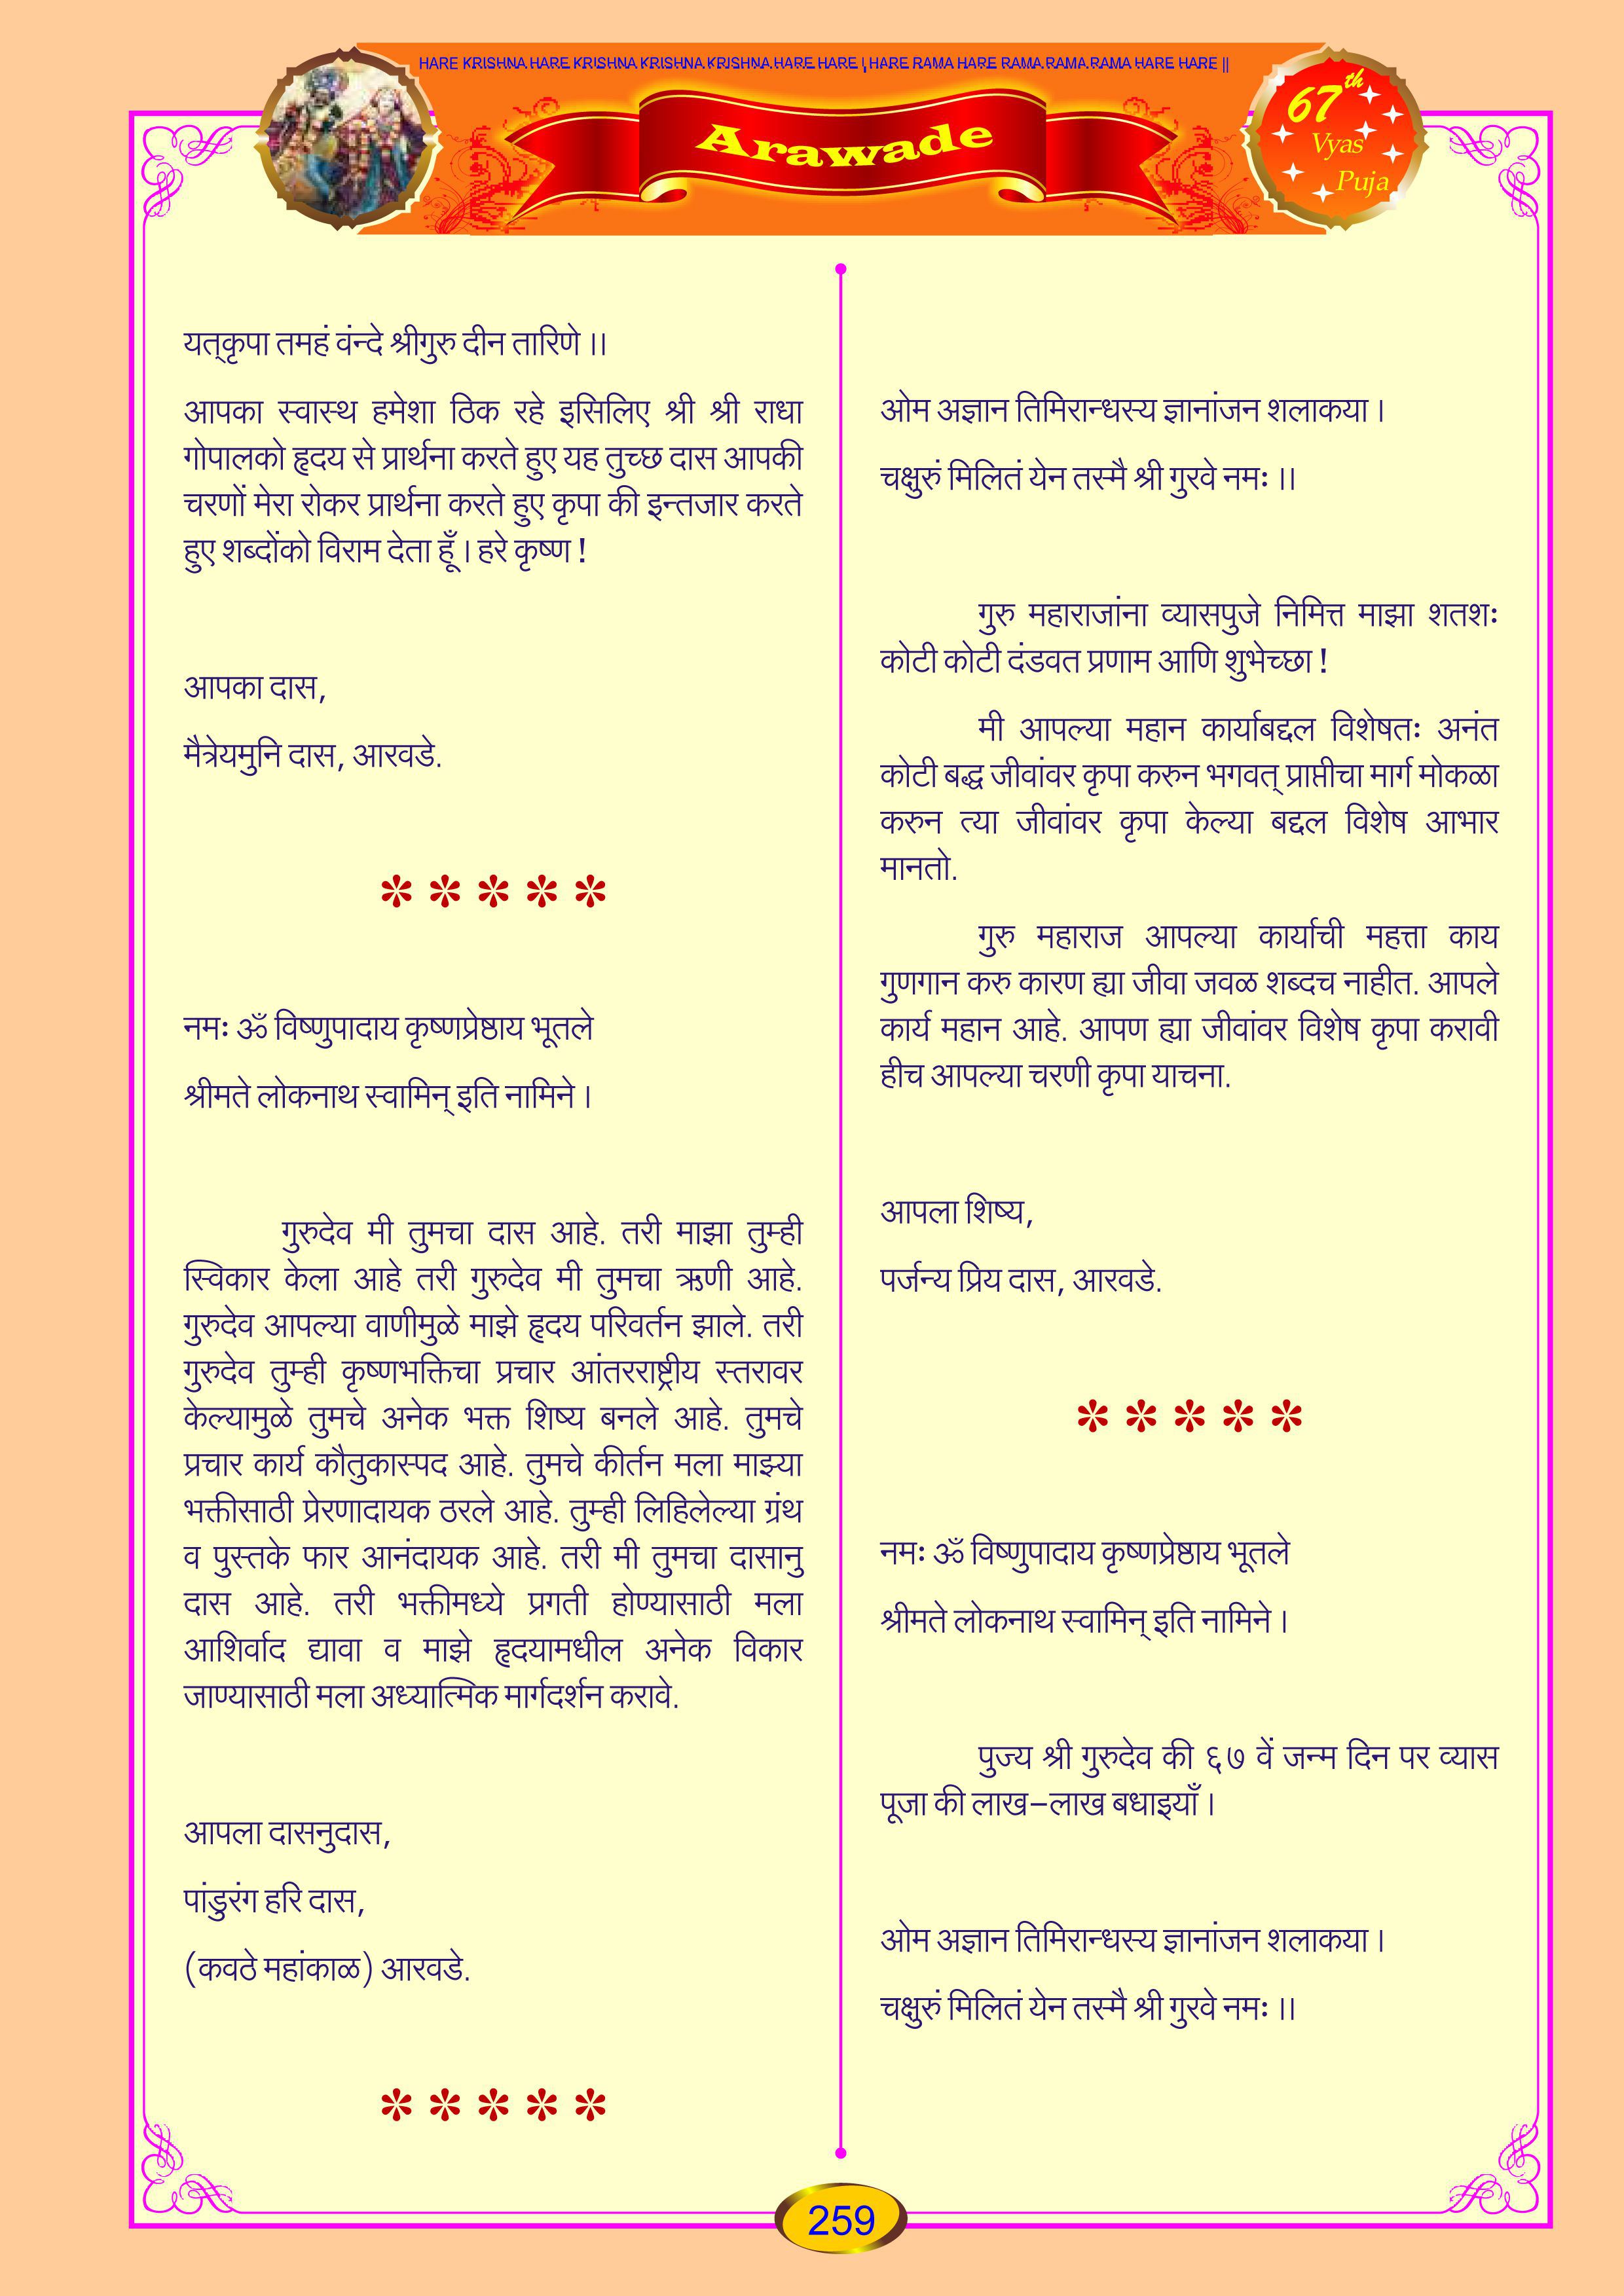 HARE KRISHNA HARE KRISHNA KRISHNA KRISHNA HARE HARE | HARE RAMA HARE RAMA RAMA RAMA HARE HARE ||
Arawade
67th
Vyas
Puja
यत्कृपा तमहं वंन्दे श्रीगुरु दीन तारिणे ।।
आपका स्वास्थ हमेशा ठिक रहे इसिलिए श्री श्री राधा
गोपालको हृदय से प्रार्थना करते हुए यह तुच्छ दास आपकी
चरणों मेरा रोकर प्रार्थना करते हुए कृपा की इन्तजार करते
हुए शब्दोंको विराम देता हूँ । हरे कृष्ण !
आपका दास,
मैत्रेयमुनि दास, आरवडे.
* * * * *
नमः ॐ विष्णुपादाय कृष्णप्रेष्ठाय भूतले
श्रीमते लोकनाथ स्वामिन् इति नामिने ।
गुरुदेव मी तुमचा दास आहे. तरी माझा तुम्ही
स्विकार केला आहे तरी गुरुदेव मी तुमचा ऋणी आहे.
गुरुदेव आपल्या वाणीमुळे माझे हृदय परिवर्तन झाले. तरी
गुरुदेव तुम्ही कृष्णभक्तिचा प्रचार आंतरराष्ट्रीय स्तरावर
केल्यामुळे तुमचे अनेक भक्त शिष्य बनले आहे. तुमचे
प्रचार कार्य कौतुकास्पद आहे. तुमचे कीर्तन मला माझ्या
भक्तीसाठी प्रेरणादायक ठरले आहे. तुम्ही लिहिलेल्या ग्रंथ
व पुस्तके फार आनंदायक आहे. तरी मी तुमचा दासानु
दास आहे. तरी भक्तीमध्ये प्रगती होण्यासाठी मला
आशिर्वाद द्यावा व माझे हृदयामधील अनेक विकार
जाण्यासाठी मला अध्यात्मिक मार्गदर्शन करावे.
आपला दासनुदास,
पांडुरंग हरि दास,
(कवठे महांकाळ) आरवडे.
* * * * *
ओम अज्ञान तिमिरान्धस्य ज्ञानांजन शलाकया ।
चक्षुरुं मिलितं येन तस्मै श्री गुरवे नमः ।।
गुरु महाराजांना व्यासपुजे निमित्त माझा शतशः
कोटी कोटी दंडवत प्रणाम आणि शुभेच्छा !
मी आपल्या महान कार्याबद्दल विशेषतः अनंत
कोटी बद्ध जीवांवर कृपा करुन भगवत् प्राप्तीचा मार्ग मोकळा
करुन त्या जीवांवर कृपा केल्या बद्दल विशेष आभार
मानतो.
गुरु महाराज आपल्या कार्याची महत्ता काय
गुणगान करु कारण ह्या जीवा जवळ शब्दच नाहीत. आपले
कार्य महान आहे. आपण ह्या जीवांवर विशेष कृपा करावी
हीच आपल्या चरणी कृपा याचना.
आपला शिष्य,
पर्जन्य प्रिय दास, आरवडे.
* * * * *
नमः ॐ विष्णुपादाय कृष्णप्रेष्ठाय भूतले
श्रीमते लोकनाथ स्वामिन् इति नामिने ।
पुज्य श्री गुरुदेव की ६७ वें जन्म दिन पर व्यास
पूजा की लाख-लाख बधाइयाँ ।
ओम अज्ञान तिमिरान्धस्य ज्ञानांजन शलाकया ।
चक्षुरुं मिलितं येन तस्मै श्री गुरवे नमः ।।
259